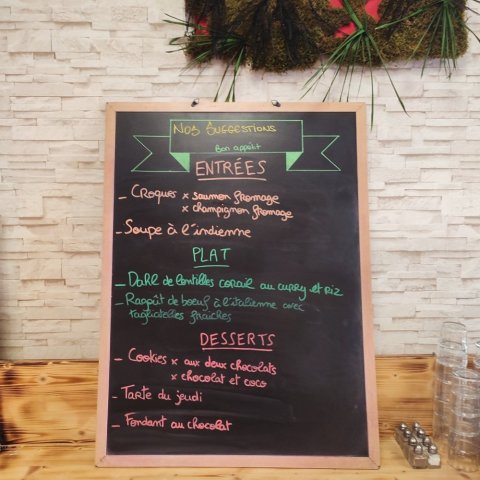 Nos Suggestions
Bon appétit
ENTRÉES
- Croques x saumon fromage
x champignon fromage
- Soupe à l'indienne
PLAT
- Dahl de lentilles corail au curry et riz
- Ragoût de boeuf à l'italienne avec
tagliatelles fraîches
DESSERTS
- Cookies x aux deux chocolats
x chocolat et coco
- Tarte du jeudi
- Fondant au chocolat